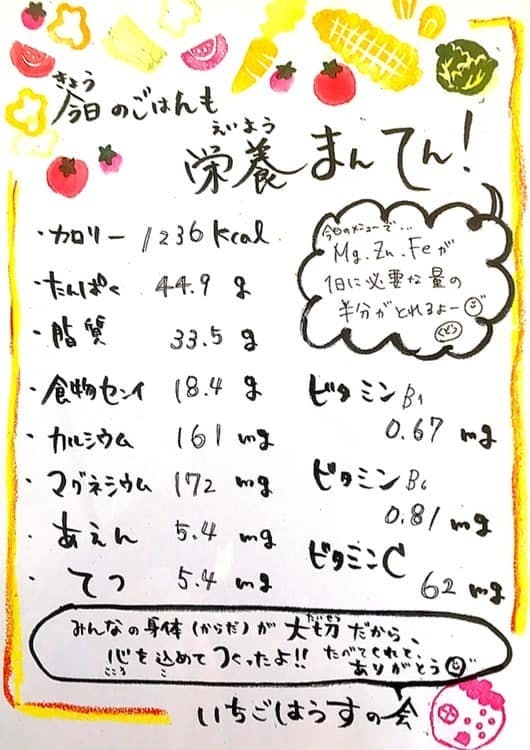 きょう
今日のごはんも
えいよう
栄養まんてん!
・カロリー 1236kcal
・たんぱく 44.9 g
・脂質 33.5 g
・食物センイ 18.4 g
・カルシウム 161 mg
・マグネシウム 172 mg
・あえん 5.4 mg
・てつ 5.4 mg
今日のメニューで...
Mg.Zn.Feが
1日に必要な量の
半分がとれるよー
ビタミンB1
0.67 mg
ビタミンB6
0.81 mg
ビタミンC
62 mg
みんなの身体(からだ)が大切だから、
心を込めてつくったよ!!
たべてくれて、
ありがとう
いちごはうすの会